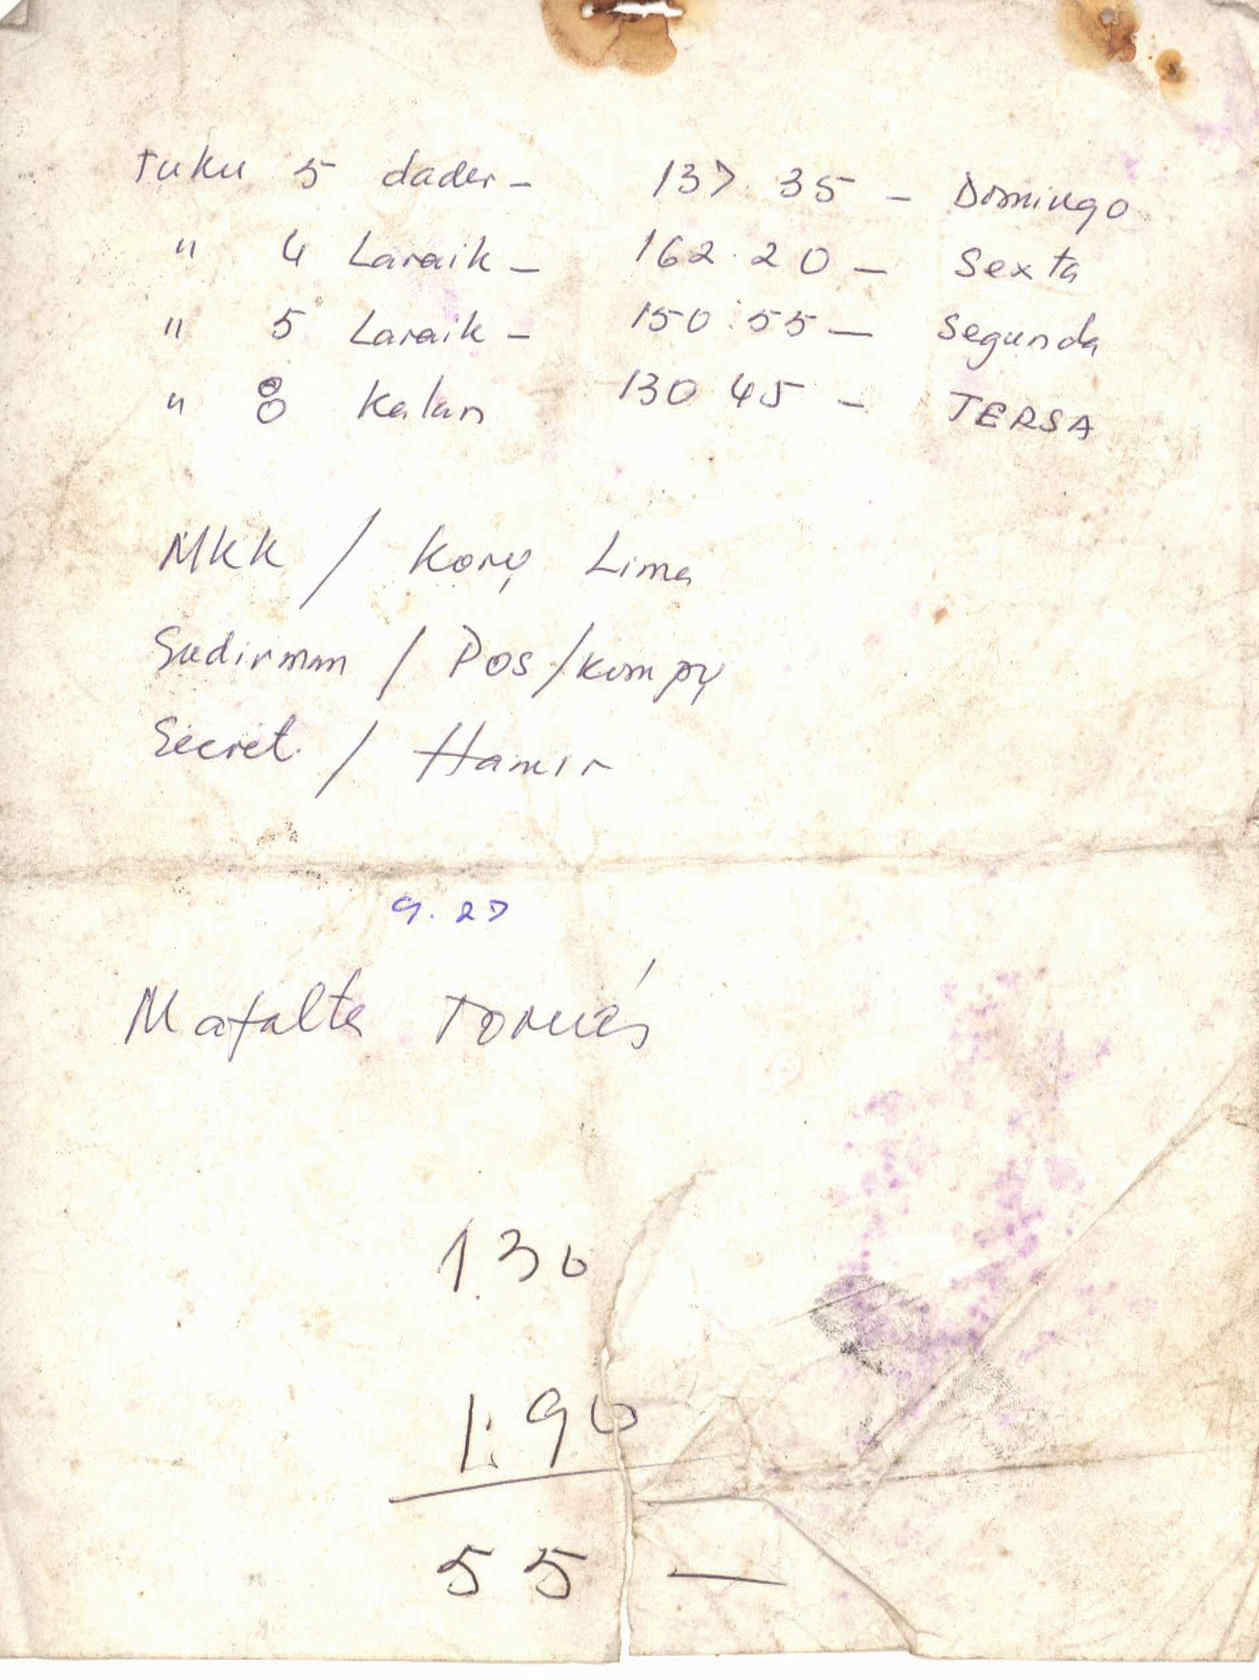 Tuku 5 dader - 137.35 - Domingo
" 4 Laraik - 162.20 - Sexta
" 5 Laraik - 150:55 - Segunda
" 8 Kalan 130 45 - TERSA
MKK / Kory Lima
Sudirman / Pos/kompy
Secret / Hamir
9.27
Mafalta Tomás
1.30
1:90
55 —